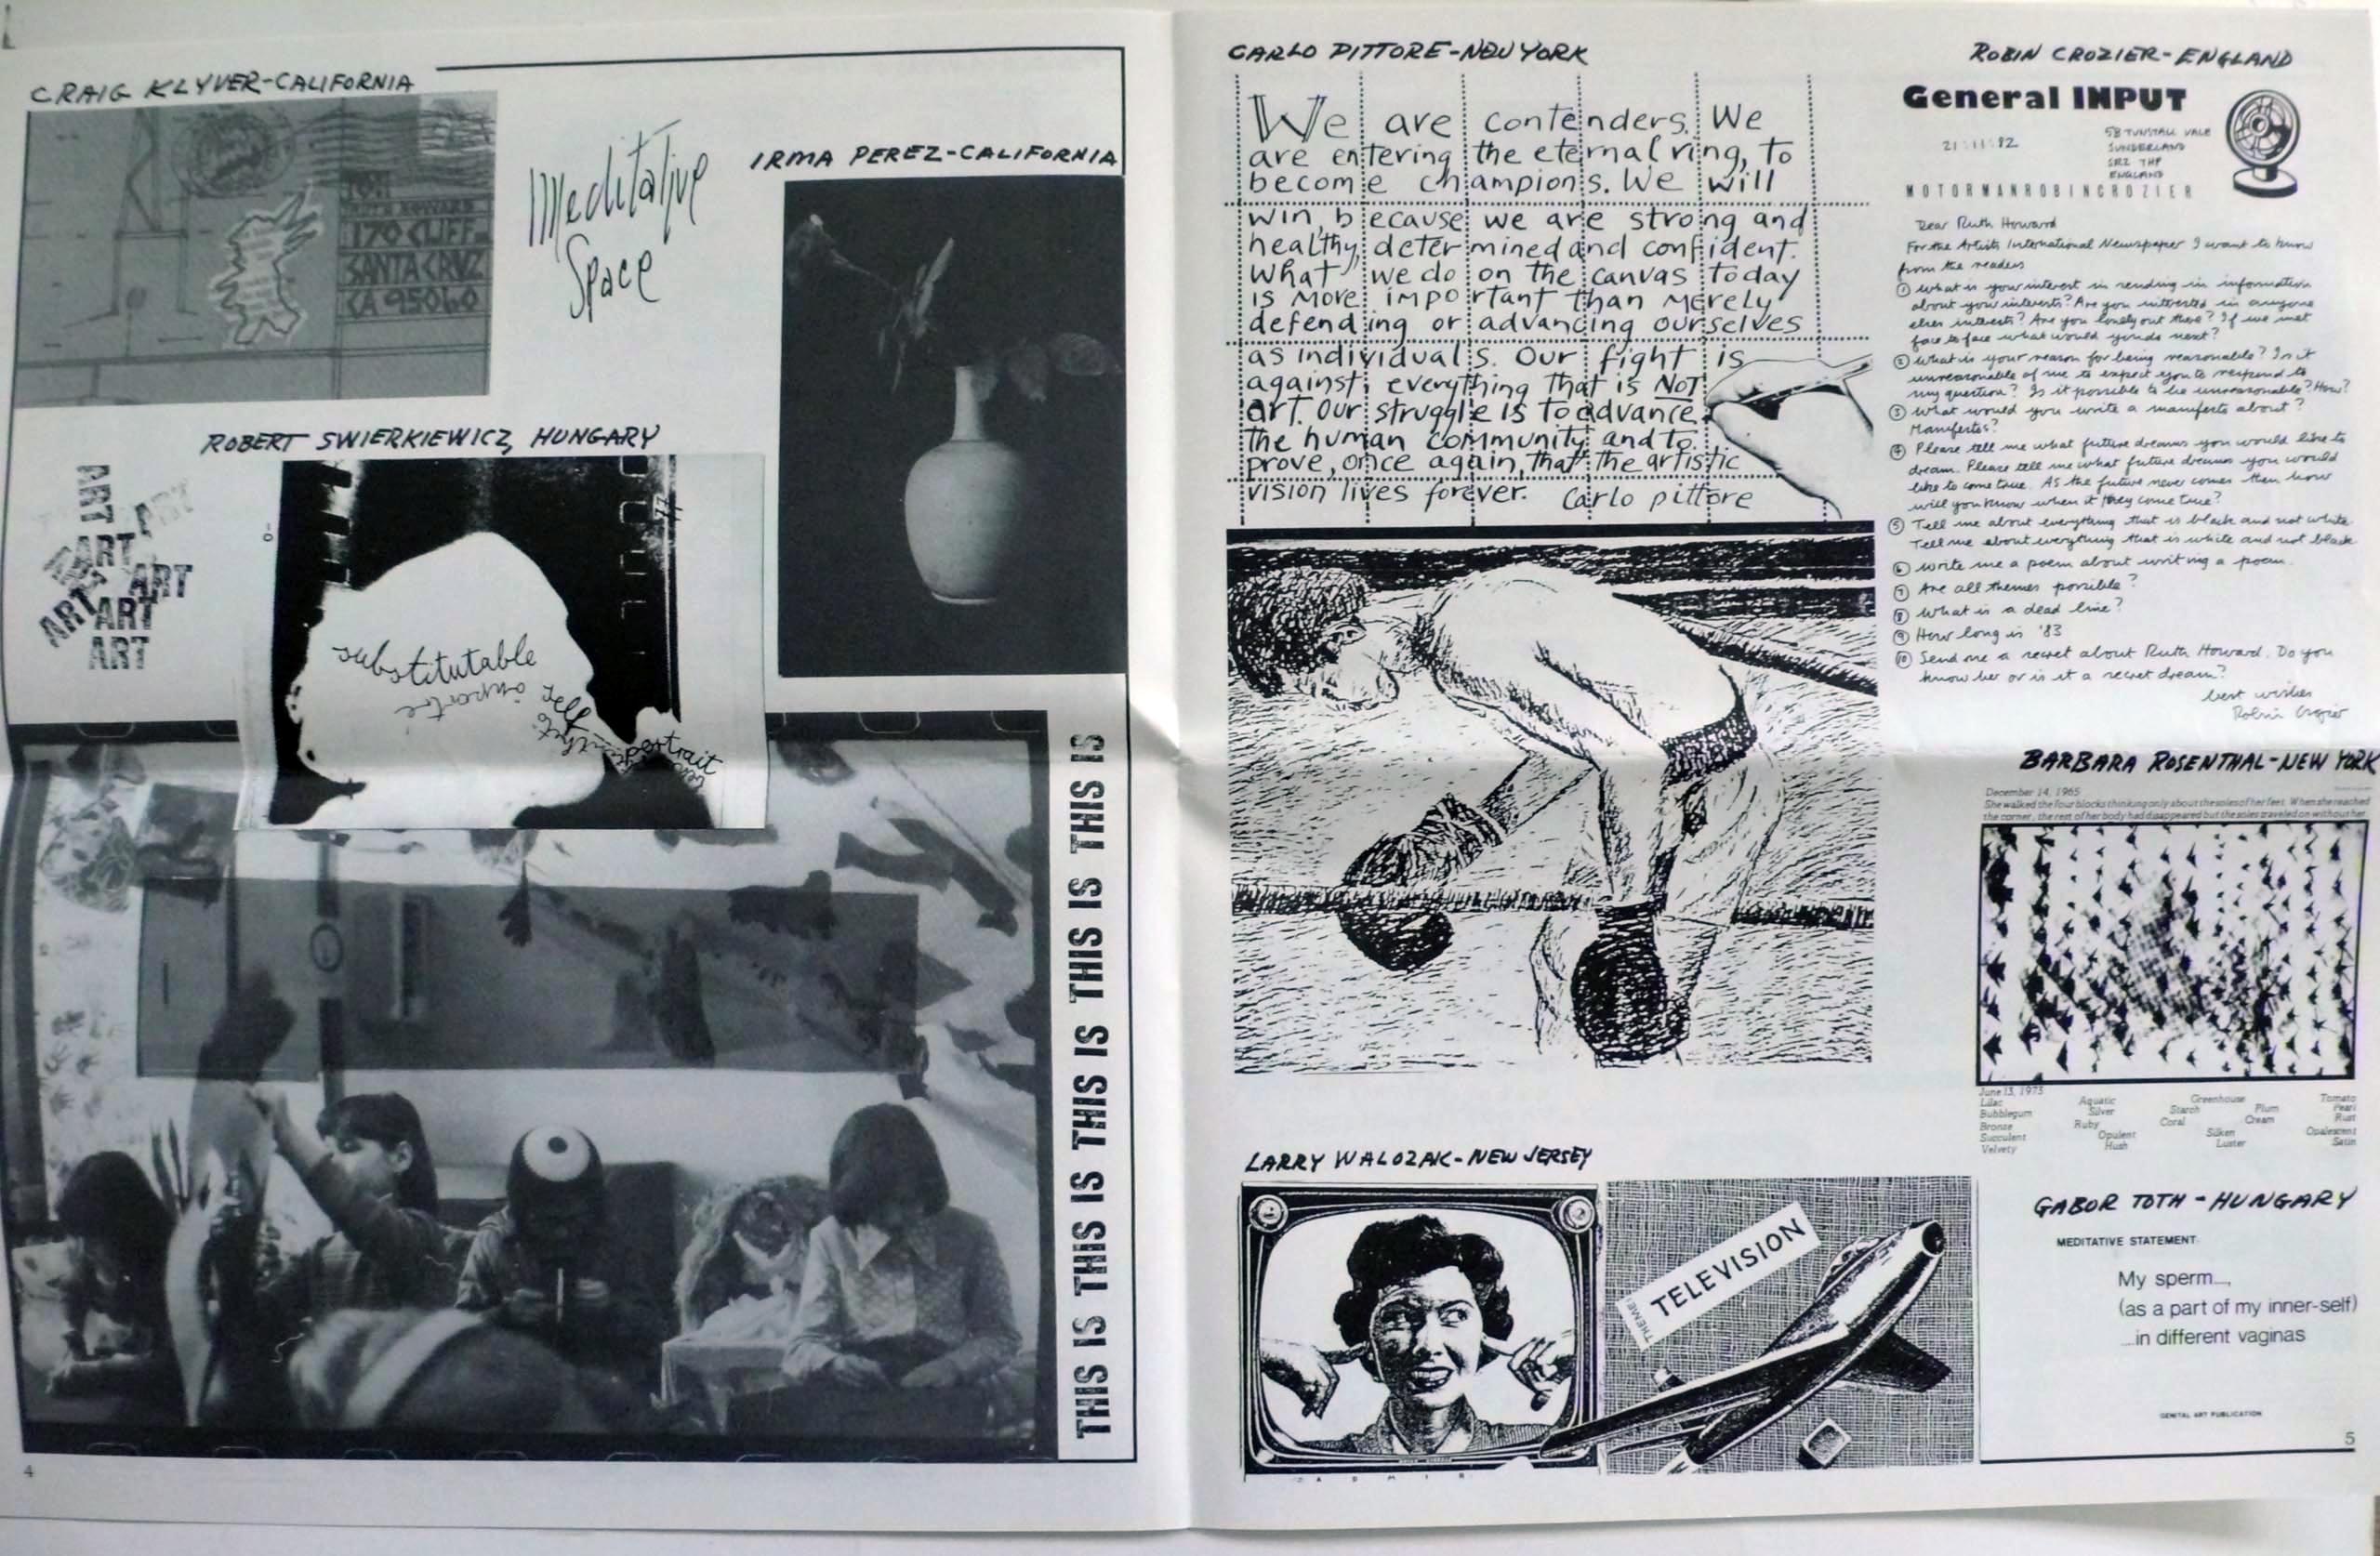 CRAIG KLYVER-CALIFORNIA
170 CLIFF
SANTA CRUZ
CA 95060
Meditative
Space
IRMA PEREZ-CALIFORNIA
ROBERT SWIERKIEWICZ, HUNGARY
ART
ART
ART
ART
ART
ART
ART
ART
77
substitutable
self
portrait
THIS IS THIS IS THIS IS THIS IS THIS IS
4
CARLO PITTORE-NEW YORK
We are contenders. We
are entering the eternal ring, to
become champions. We will
win, because we are strong and
healthy, determined and confident.
What we do on the canvas today
is more important than merely
defending or advancing ourselves
as individuals. Our fight is
against everything that is NOT
art. Our struggle is to advance
the human community and to
prove, once again, that the artistic
vision lives forever. Carlo pittore
LARRY WALOZAK-NEW JERSEY
THEME:
TELEVISION
ROBIN CROZIER-ENGLAND
General INPUT
21 11 82
58 TUNSTALL VALE
SUNDERLAND
SR2 7HP
ENGLAND
MOTORMANROBINCROZIER
Dear Ruth Howard
For the Artists International Newspaper I want to know
from the readers
① What is your interest in sending in information
about your interests? Are you interested in anyone
elses interests? Are you lonely out there? If we met
face to face what would you do next?
② What is your reason for being reasonable? Is it
unreasonable of me to expect you to respond to
my question? Is it possible to be unreasonable? How?
③ What would you write a manifesto about?
Manifestos?
④ Please tell me what future dreams you would like to
dream. Please tell me what future dreams you would
like to come true. As the future never comes then how
will you know when it they come true?
⑤ Tell me about everything that is black and not white
Tell me about everything that is white and not black
⑥ Write me a poem about writing a poem.
⑦ Are all themes possible?
⑧ What is a dead line?
⑨ How long is '83
⑩ Send me a secret about Ruth Howard. Do you
know her or is it a secret dream?
best wishes
Robin Crozier
BARBARA ROSENTHAL-NEW YORK
December 14, 1965
She walked the four blocks thinking only about the soles of her feet. When she reached
the corner, the rest of her body had disappeared but the soles traveled on without her
June 13, 1973
Lilac Aquatic Greenhouse Tomato
Bubblegum Silver Starch Plum Pearl
Bronze Ruby Coral Cream Rust
Succulent Opulent Silken Opalescent
Velvety Hush Luster Satin
GABOR TOTH - HUNGARY
MEDITATIVE STATEMENT
My sperm...,
(as a part of my inner-self)
...in different vaginas
GENITAL ART PUBLICATION
5